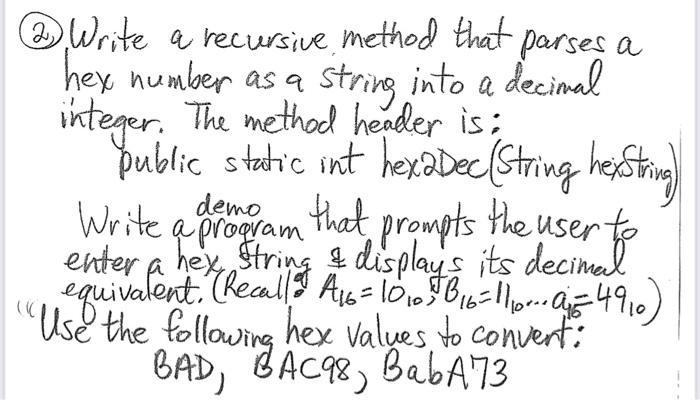 ② Write a recursive method that parses a
hex number as a string into a decimal
integer. The method header is:
public static int hex2Dec(String hexString)
Write a demo program that prompts the user to
enter a hex string & displays its decimal
equivalent. (Recall: A₁₆=10₁₀, B₁₆=11₁₀... a₁₆=49₁₀)
"Use the following hex values to convert:
BAD, BAC98, BabA73